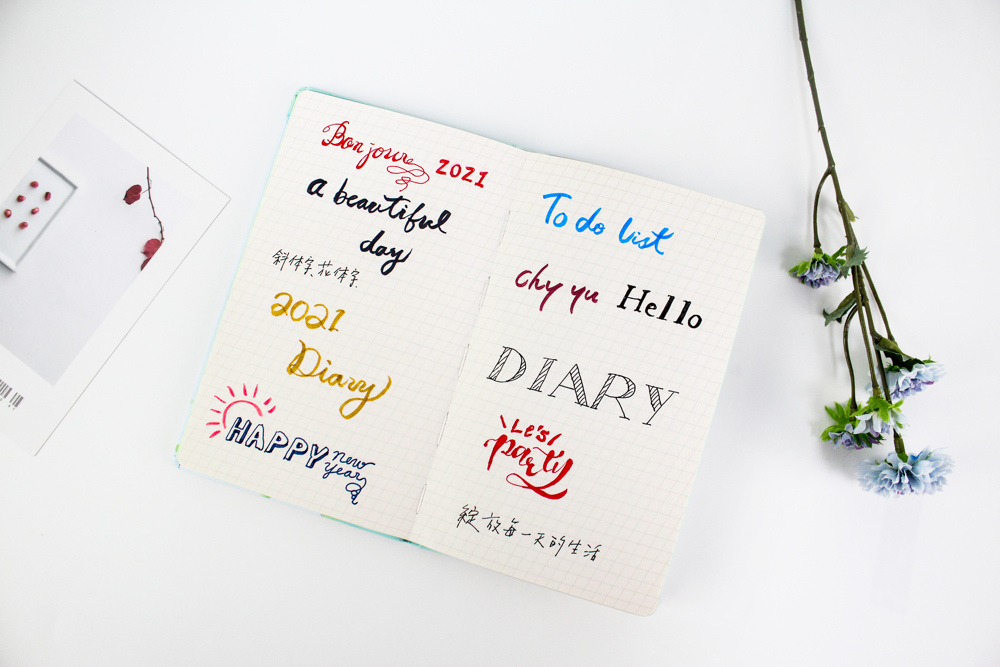 Bonjour 2021
a beautiful
day
斜体字、花体字
2021
Diary
HAPPY new
year
To do list
chy yu Hello
DIARY
Le's
party
綻放每一天的生活